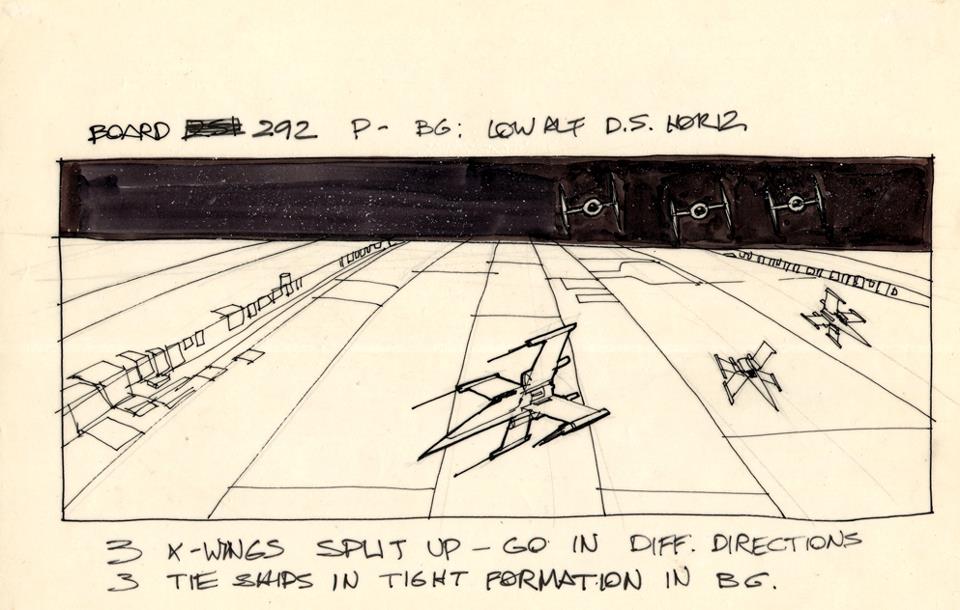 BOARD 292 P- BG: LOW ALT D.S. HORIZ
3 X-WINGS SPLIT UP - GO IN DIFF. DIRECTIONS
3 TIE SHIPS IN TIGHT FORMATION IN BG.